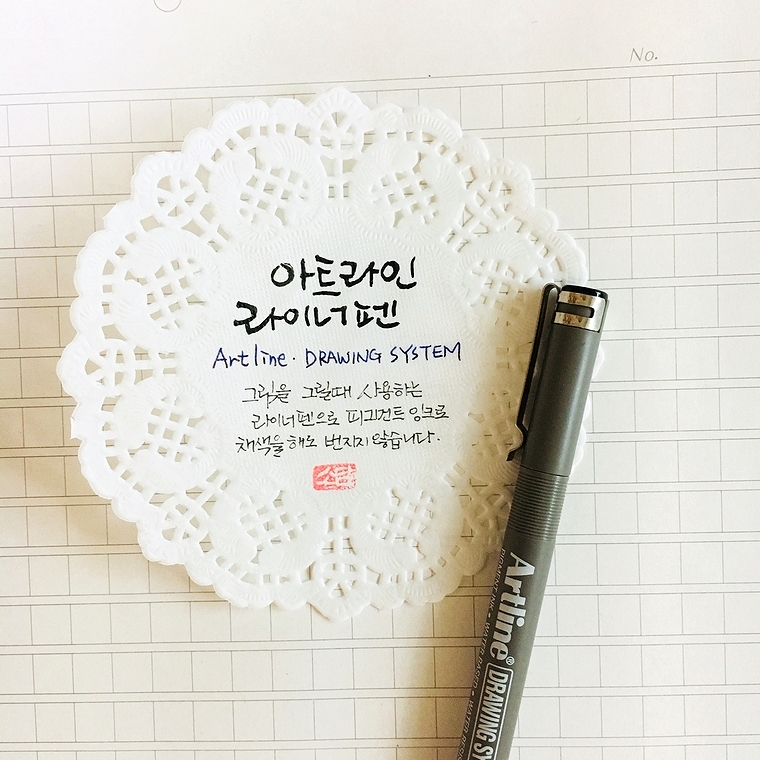 No.
아트라인
라이너펜
Artline. DRAWING SYSTEM
그림을 그릴때 사용하는
라이너펜으로 피그먼트잉크로
채색을해도 번지지않습니다.
Artline® DRAWING SY
PIGMENT INK • WATER BASED • WATER RESIS